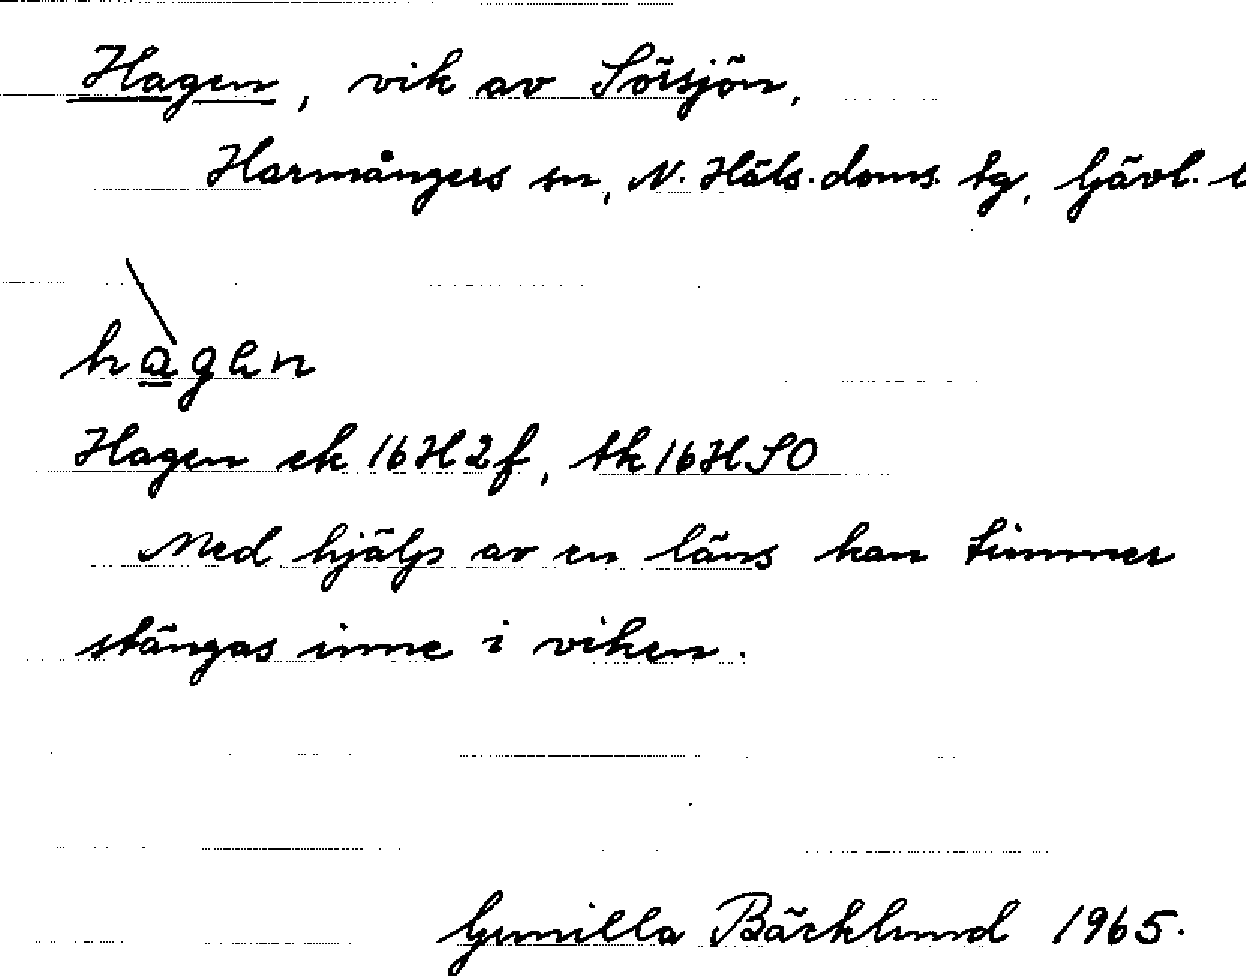 Hagen, vik av Sörsjön,
Harmångers sn, N. Häls.doms. tg, Gävl. l
hàgen
Hagen ek 16H2f, tk 16HSO
Med hjälp av en läns kan timmer
stängas inne i viken.
Gunilla Bäcklund 1965.